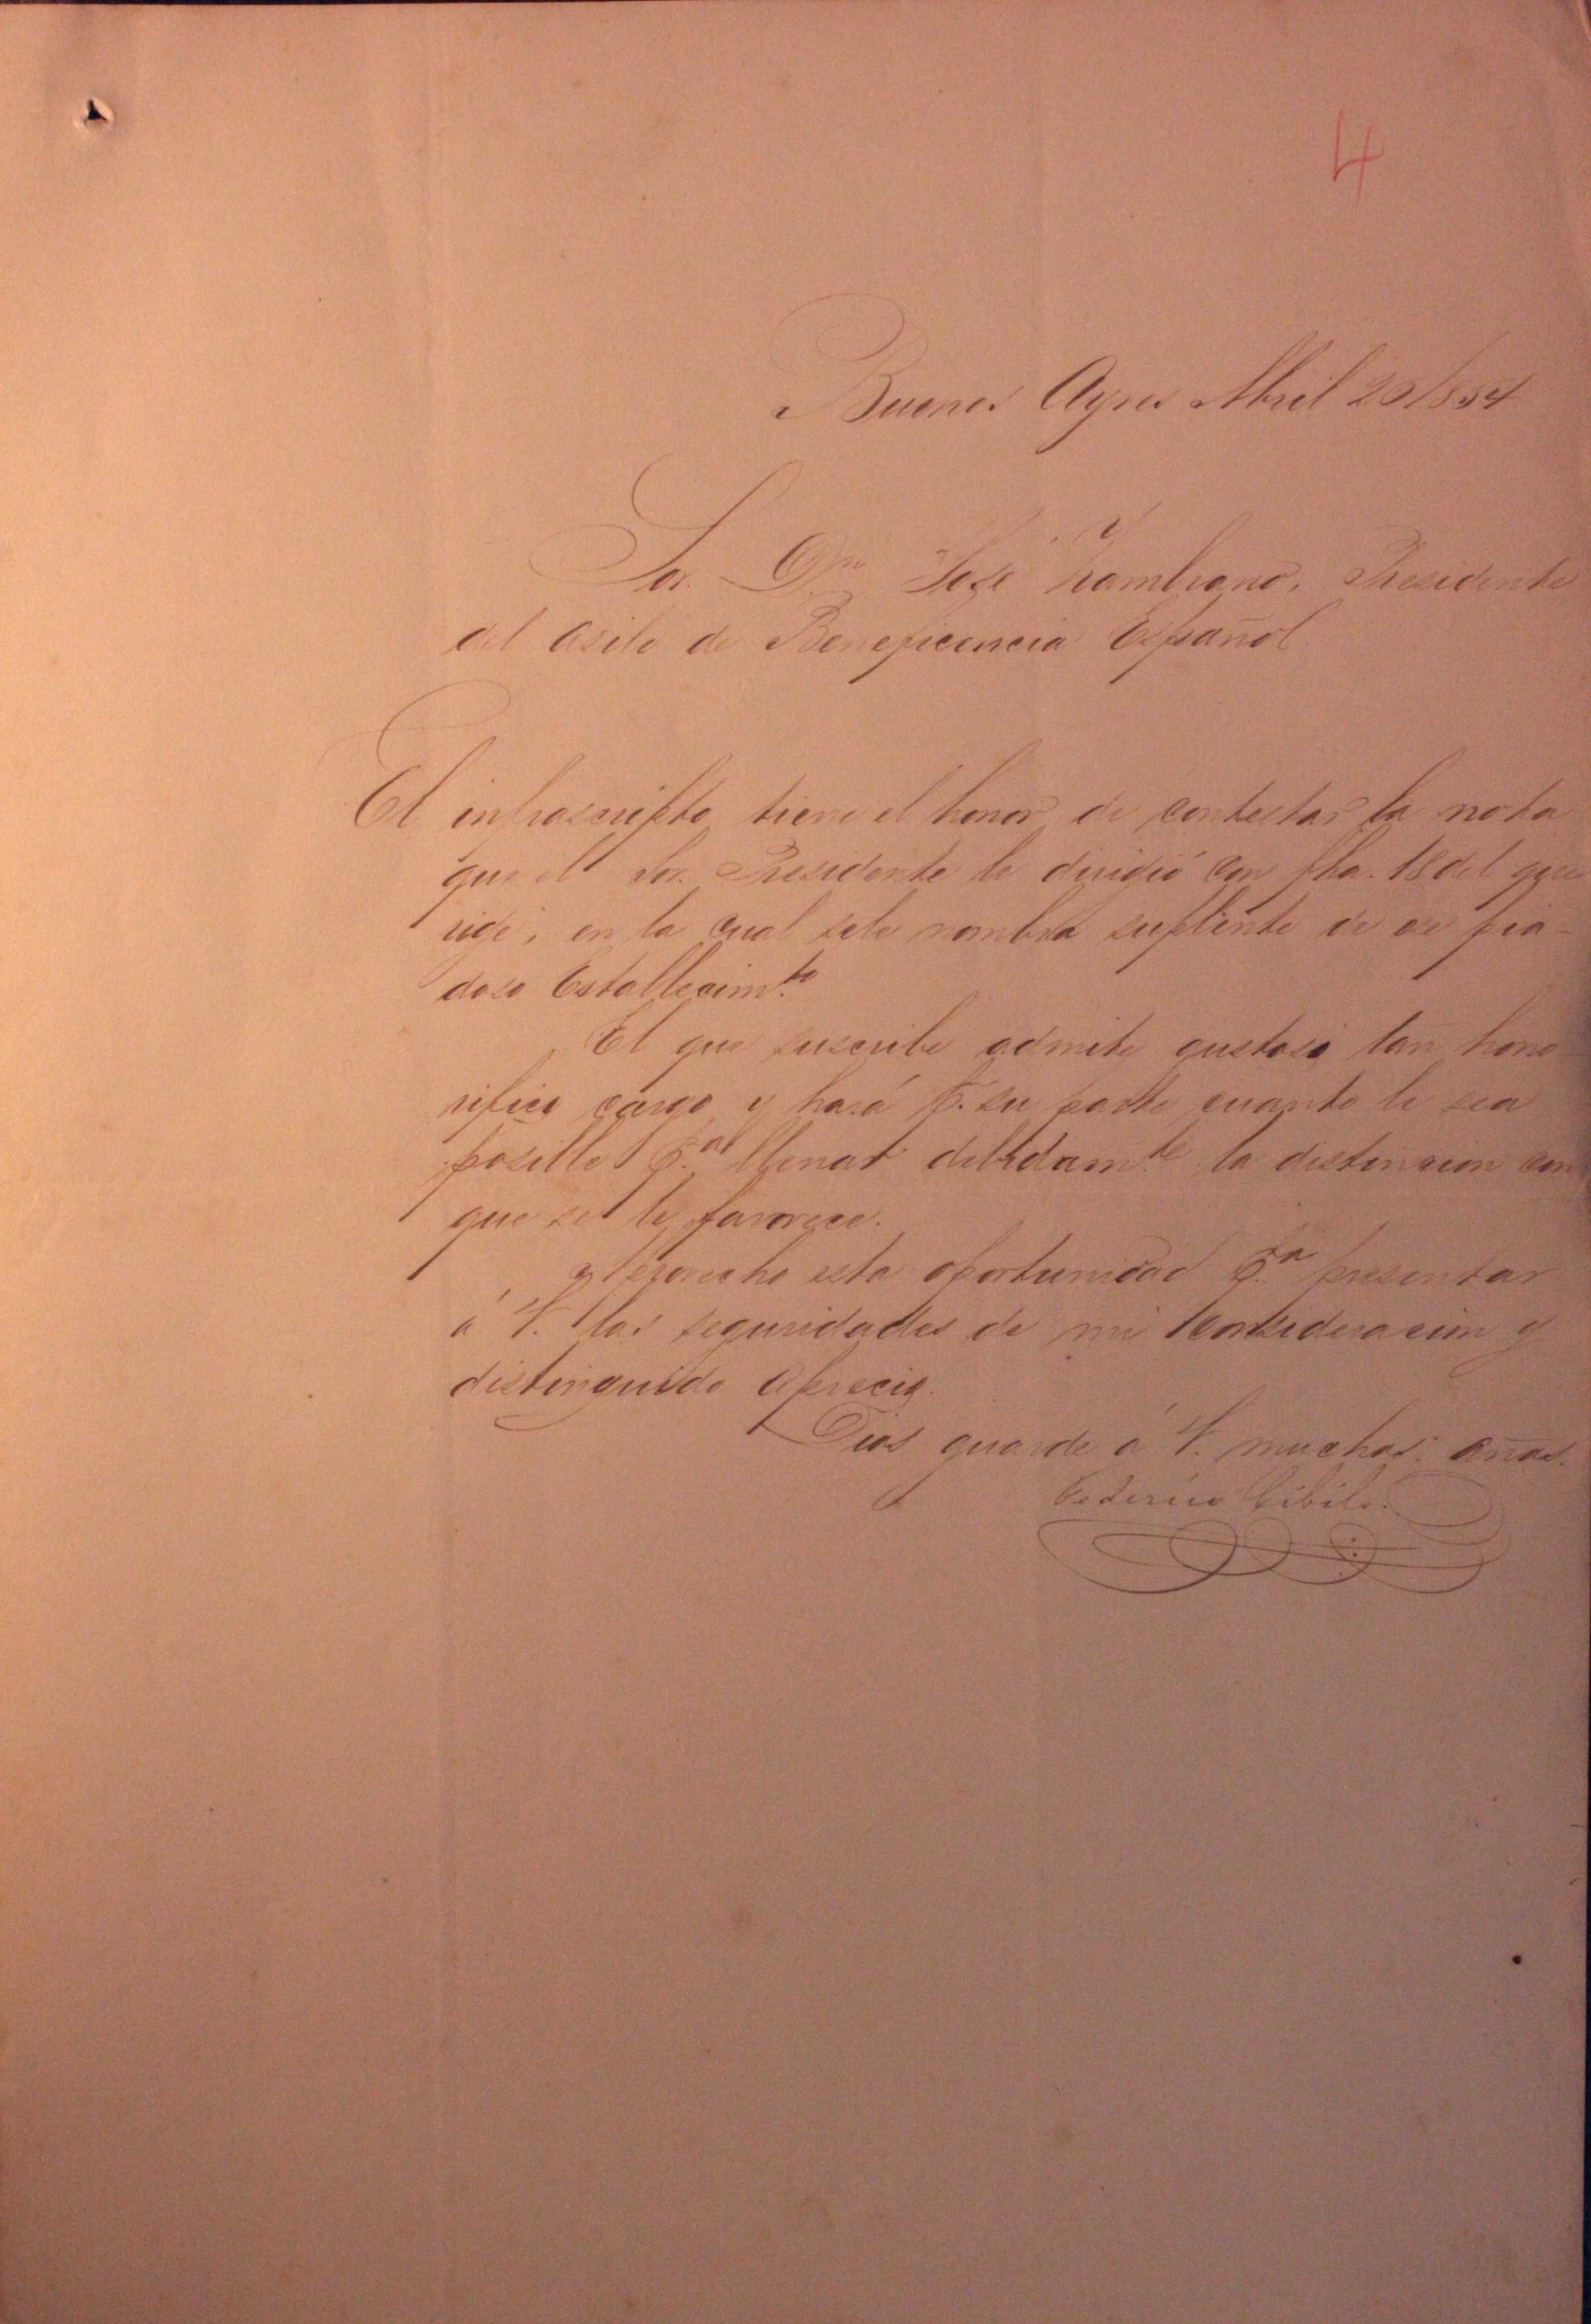 4
Buenos Ayres Abril 20/854
Sor. Dn José Zambrano, Presidente
del Asilo de Beneficencia Español.
El infrascripto tiene el honor de contestar la nota
que el Sor. Presidente le dirigió con fha. 18 del que
rige, en la cual se le nombra suplente de ese pia-
doso Establecimto.
El que suscribe admite gustoso tan hono-
rifico cargo y hará p. su parte cuanto le sea
posible pa. llenar debidamte. la distincion con
que se le favorece.
Aprovecho esta oportunidad pa. presentar
á V. las seguridades de mi consideracion y
distinguido aprecio.
Dios guarde á V. muchos años.
Federico Cibils.